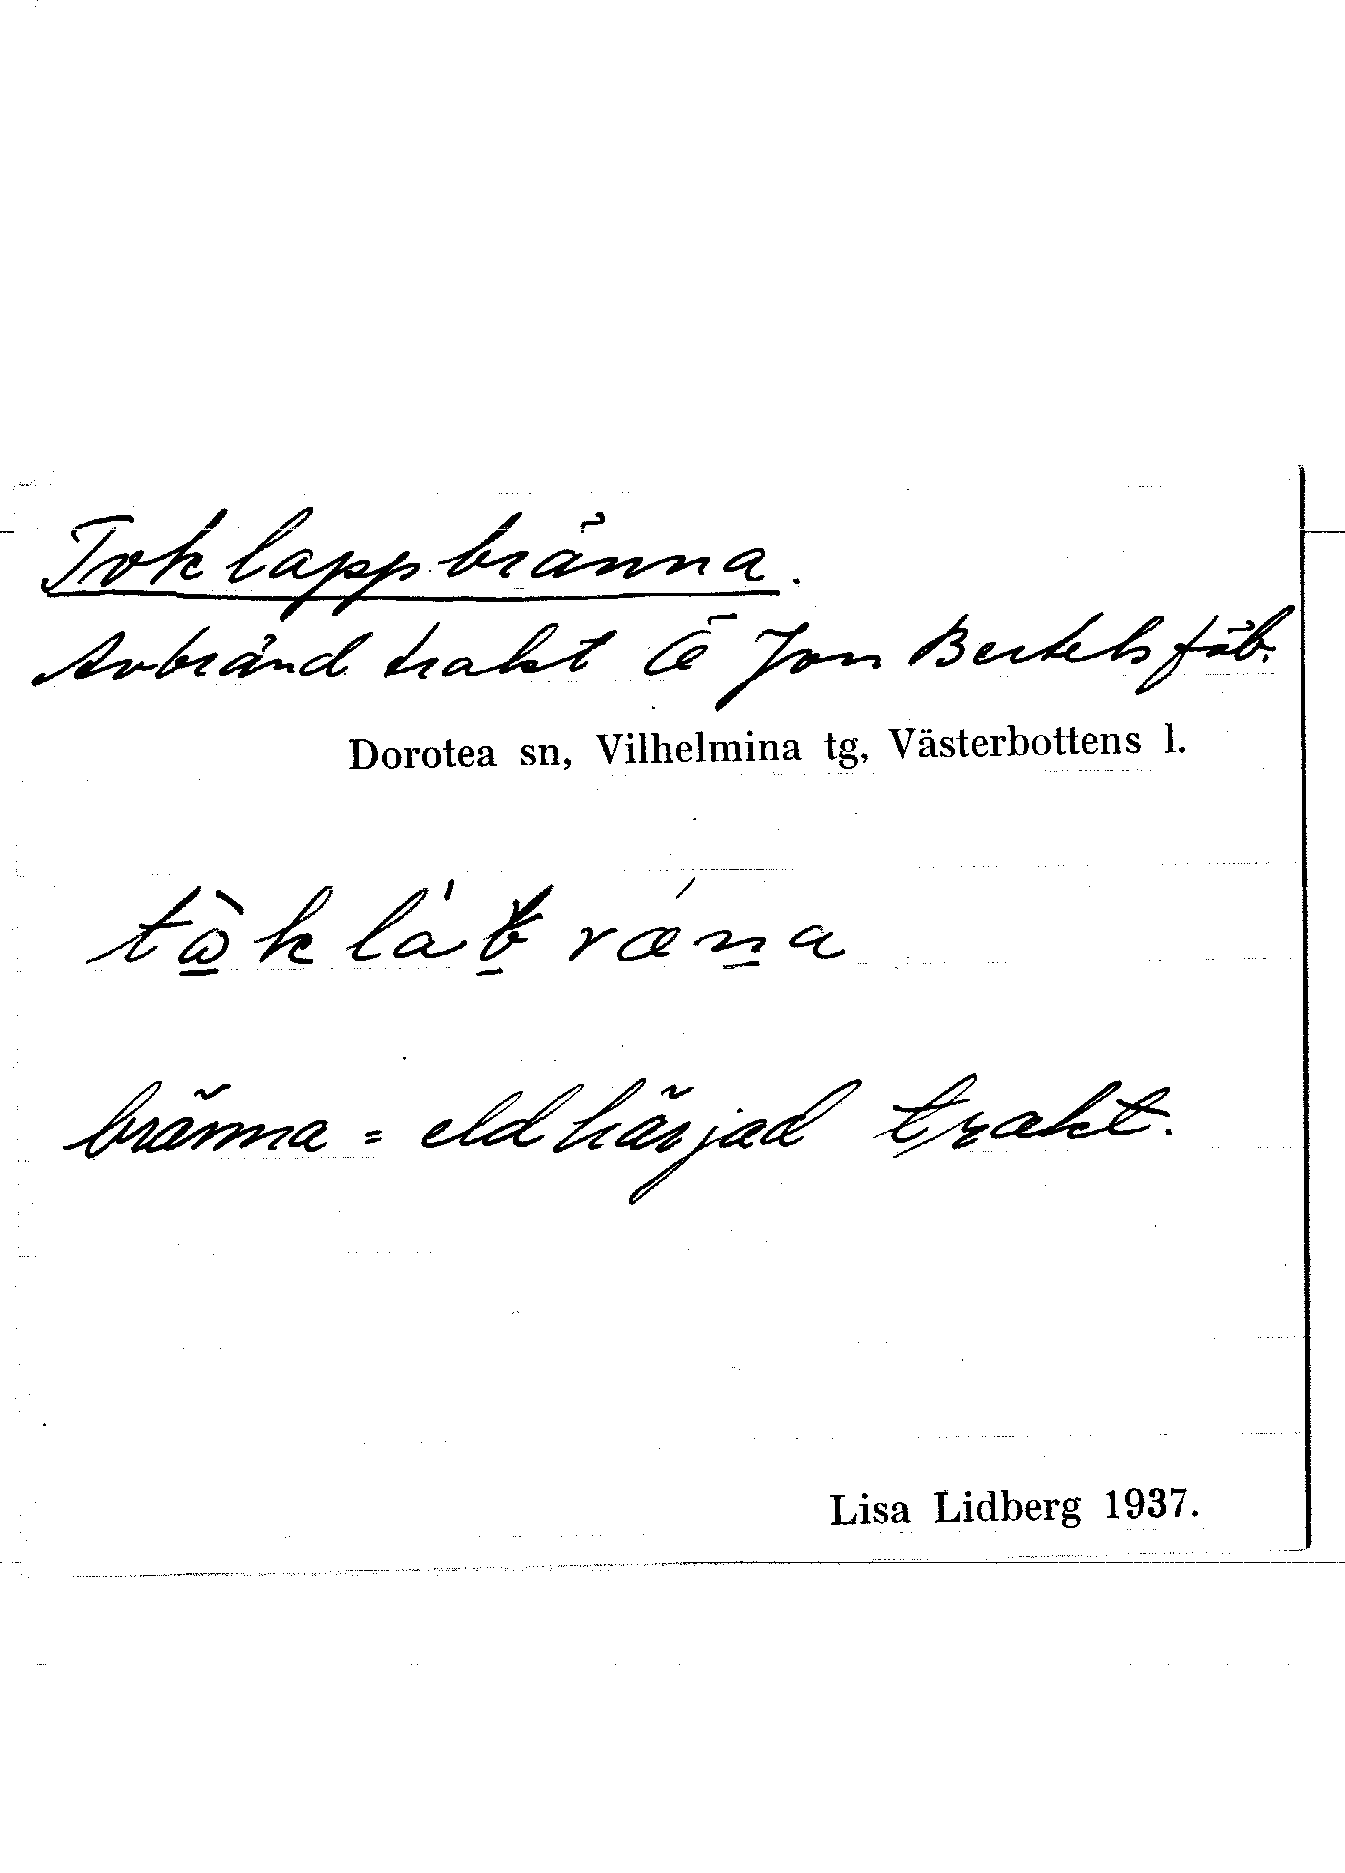 Tok lappbränna.
Avbränd trakt Ö Jon Bertelsfäb.
Dorotea sn, Vilhelmina tg, Västerbottens l.
bränna = eldhärjad trakt.
Lisa Lidberg 1937.